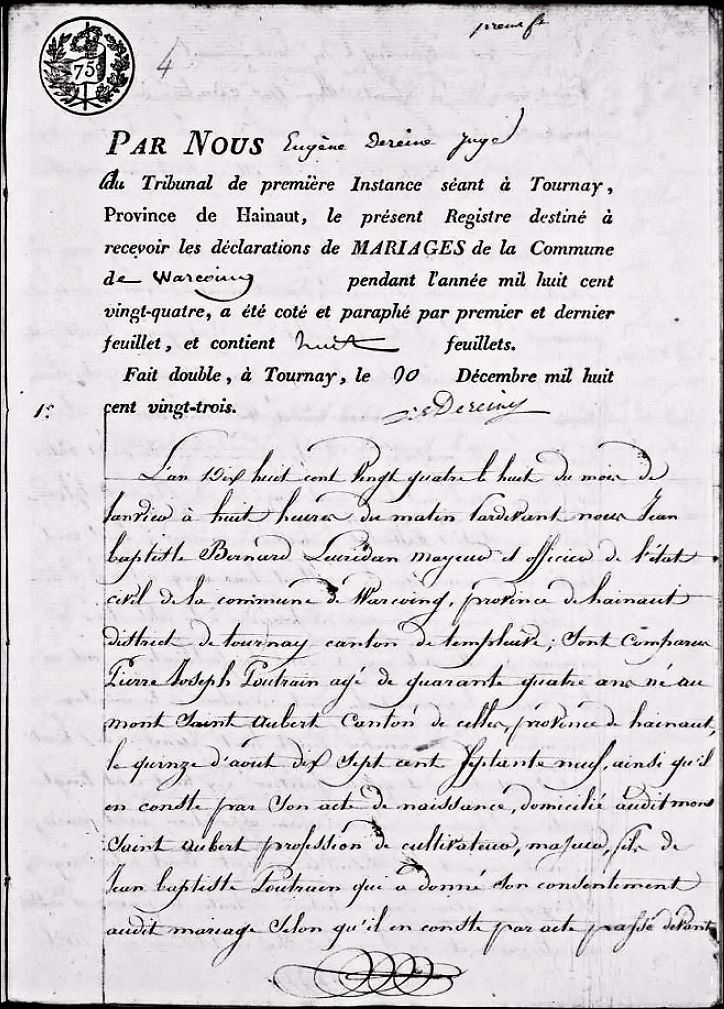 premier ft
75
4
PAR NOUS Eugène Dereine Juge
du Tribunal de première Instance séant à Tournay,
Province de Hainaut, le présent Registre destiné à
recevoir les déclarations de MARIAGES de la Commune
de Warcoing pendant l'année mil huit cent
vingt-quatre, a été coté et paraphé par premier et dernier
feuillet, et contient huit feuillets.
Fait double, à Tournay, le Décembre mil huit
cent vingt-trois. Dereine
L'an Dix huit cent Vingt quatre le huit du mois de
Janvier à huit heures du matin Pardevant nous Jean
baptiste Bernard Leuridan mayeur et officier de l'état
civil de la commune de Warcoing, province de hainaut
district de tournay canton de templeuve; Sont Comparus
Pierre Joseph Poutrain agé de quarante quatre ans né au
mont Saint aubert Canton de celles, province de hainaut,
le quinze d'août dix Sept cent Septante neuf, ainsi qu'il
en conste par Son acte de naissance, domicilié audit mont
Saint aubert profession de cultivateur, majeur, fils de
Jean baptiste Poutrain qui a donné Son consentement
audit mariage Selon qu'il en conste par acte passé devant